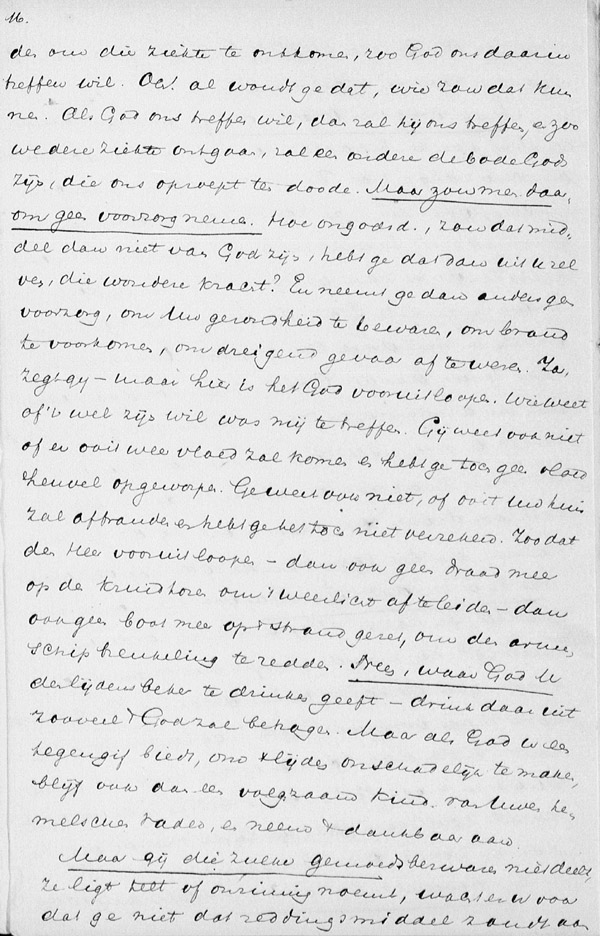 16.
den om die ziekte te ontkomen, zoo God ons daarin
treffen wil. Och! al woudt ge dat, wie zou dat kun
nen. Als God ons treffen wil, dan zal hij ons treffen, en zoo
we deze ziekte ontgaan, zal een andere de bode Gods
zijn, die ons oproept ten doode. Maar zou men daar-
om geen voorzorg nemen. Hoe ongodsd., zou dat mid-
del dan niet van God zijn, hebt ge dat dan uit U zel
ven, die wondere kracht? En neemt ge dan anders geen
voorzorg, om Uw gezondheid te bewaren, om brand
te voorkomen, om dreigend gevaar af te weren. Ja,
zegt gij — maar hier is het God vooruitloopen. Wie weet
of 't wel zijn wil was mij te treffen. Gij weet ook niet
of er ooit weer vloed zal komen en hebt ge toch geen vloed
heuvel opgeworpen. Ge weet ook niet, of ooit Uw huis
zal afbranden en hebt ge het toch niet verzekerd. Zoo dat
den Heer vooruitloopen — dan ook geen draad meer
op de kruidtoren om 't weerlicht af te leiden — dan
ook geen boot meer op 't strand gezet, om den armen
schipbreukeling te redden. Neen, waar God U
den lijdensbeker te drinken geeft — drink daaruit
zooveel 't God zal behagen. Maar als God U een
tegengif biedt, om 't lijden onschadelijk te maken,
blijf ook dan een volgzaam kind van Uwen he-
melschen Vader, en neem 't dankbaar aan.
Maar gij die zulke gemoedsbezwaren niet deelt,
ze ligt telt of onzinnig noemt, wacht er U voor
dat ge niet dat reddingsmiddel zoudt aan